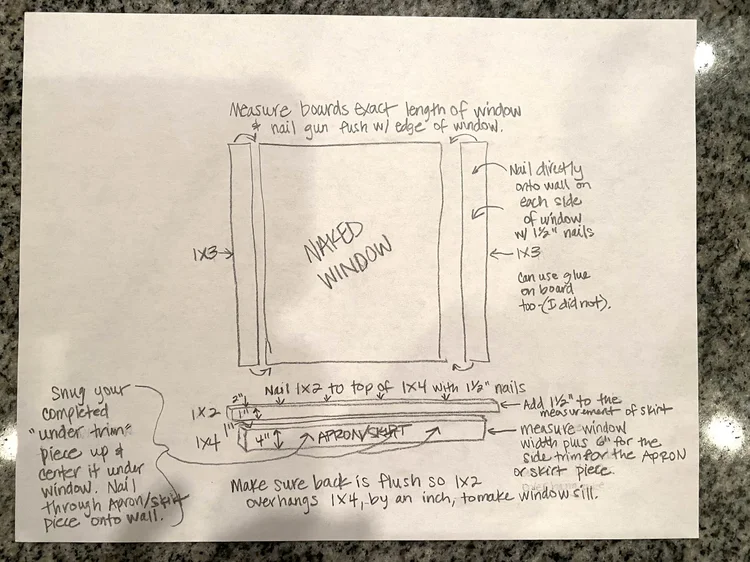 Measure boards exact length of window
& nail gun flush w/ edge of window.
1x3
NAKED
WINDOW
Nail directly
onto wall on
each side
of window
w/ 1½" nails
1x3
Can use glue
on board
too-(I did not).
Nail 1x2 to top of 1x4 with 1½" nails
1x2
2"
1"
Add 1½" to the
measurement of skirt
1x4
1"
4"
APRON/SKIRT
measure window
width plus 6" for the
side trim for the APRON
or skirt piece.
Snug your
completed
"under trim"
piece up &
center it under
window. Nail
through Apron/skirt
piece onto wall.
Make sure back is flush so 1x2
overhangs 1x4, by an inch, to make window sill.